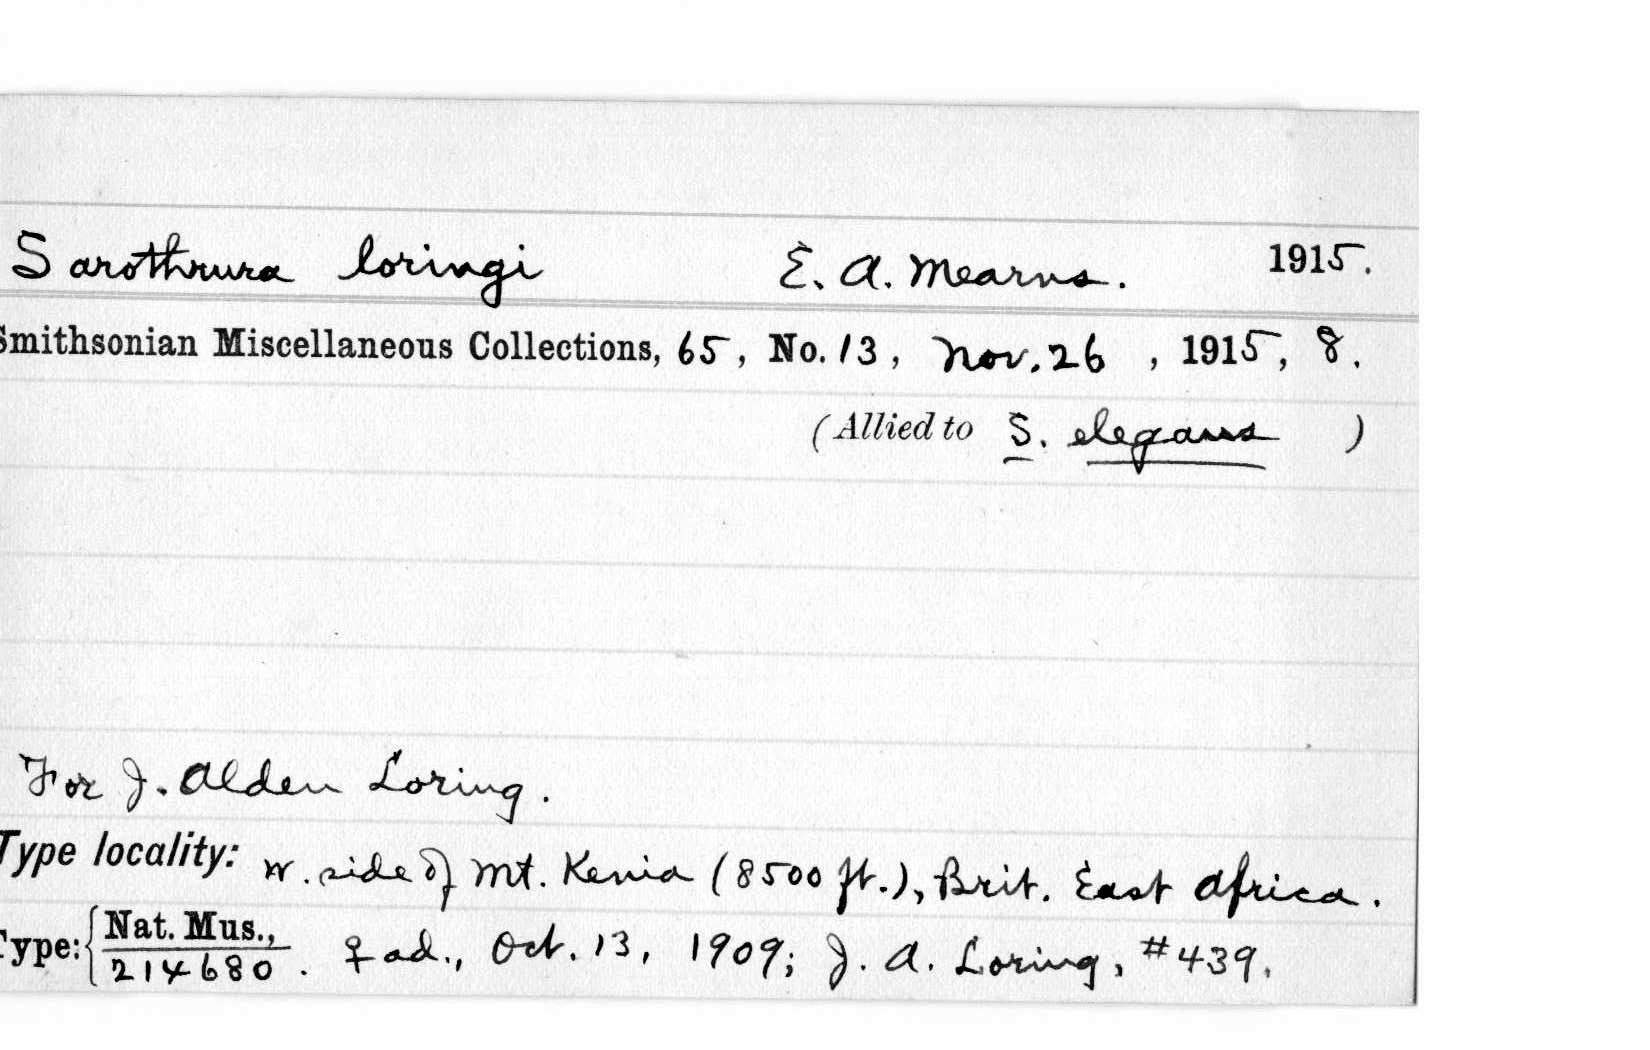 Sarothrura loringi E. A. Mearns. 1915.
Smithsonian Miscellaneous Collections, 65, No. 13, Nov. 26, 1915, 8.
(Allied to S. elegans)
For J. Alden Loring.
Type locality: W. side of Mt. Kenia (8500 ft.), Brit. East Africa.
Type: { Nat. Mus.,
214680. ♀ ad., Oct. 13, 1909; J. A. Loring, #439.